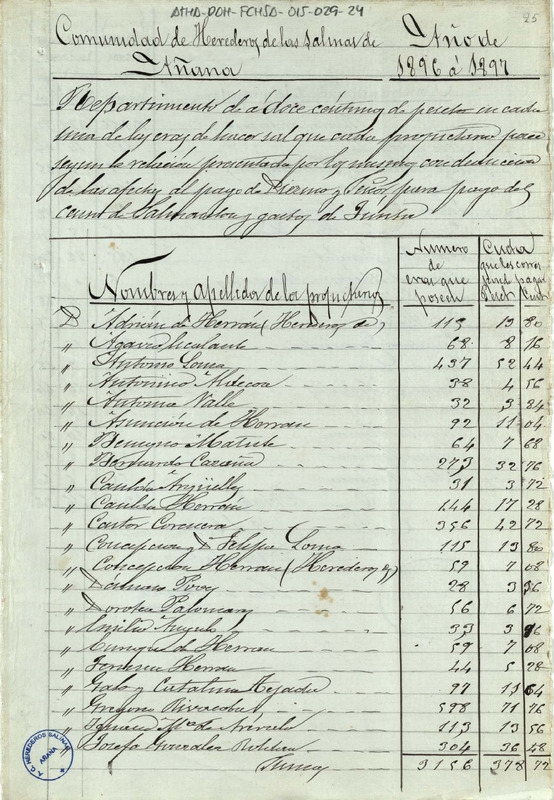 ATHA-DAH-FCHSA-015-029-24
25
Comunidad de Herederos de las Salinas de
Añana
Año de
1896 á 1897
Repartimiento de á doce céntimos de peseta en cada
una de las eras de hacer sal que cada propietario posee
segun la relación presentada por los mismos con deducción
de las afectas al pago de Diezmo y Señor para pago del
de y gastos de Junta
Nombres y apellidos de los propietarios
Numero
de
eras que
poseen
Cuota
que les corres
ponde pagar
Pest Cént
D Adrián de Herrán (Herederos de) 115 13 80
" 68 8 16
" Antonio Loma 437 52 44
" Antonino 38 4 56
" Antonia Valle 32 3 84
" Asunción de Herrán 92 11 04
" Benigno Matute 64 7 68
" Bernardo 273 32 76
" Candida Argüelles 31 3 72
" Candida Herrán 144 17 28
" Castor Corcuera 356 42 72
" Concepcion y D Felipa Loma 115 13 80
" Concepcion Herrán (Herederos de) 59 7 08
" Damaso 28 3 36
" Dorotea Palomares 56 6 72
" Emilio Angulo 33 3 96
" Enrique de Herrán 59 7 08
" Herrán 44 5 28
" Galo y Catalina Tejada 97 11 64
" Gregorio Rivacoba 598 71 76
" Ignacio Mª de 113 13 56
" Josefa González 304 36 48
Suma 3156 378 72
A. C. HEREDEROS SALINAS
AÑANA